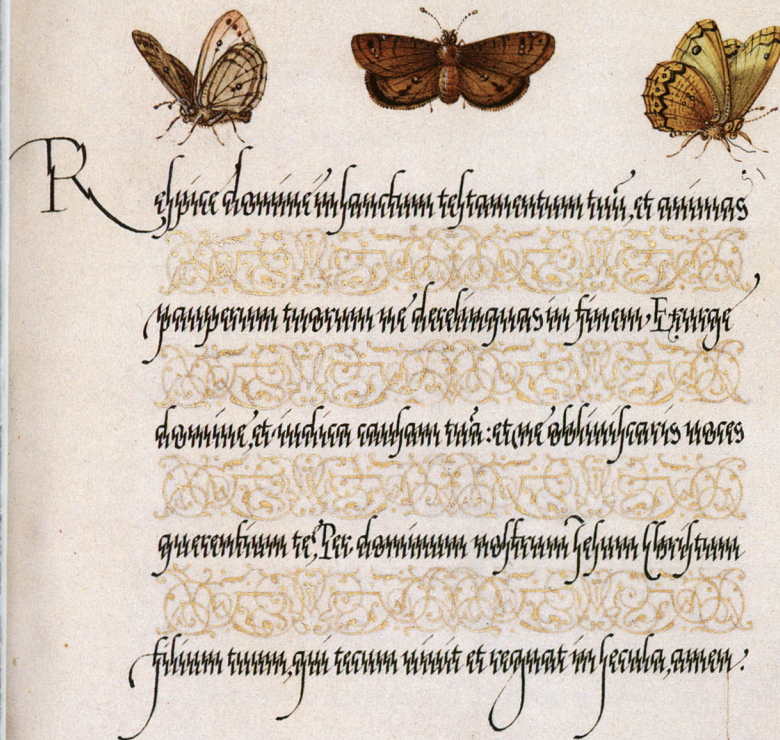 Respice domine in sanctum testamentum tuū, et animas
pauperum tuorum ne derelinquas in finem. Exurge
domine, et iudica causam tuā: et ne obliuiscaris uoces
querentium te, Per dominum nostrum Jesum Christum
filium tuum, qui tecum uiuit et regnat in secula, amen.